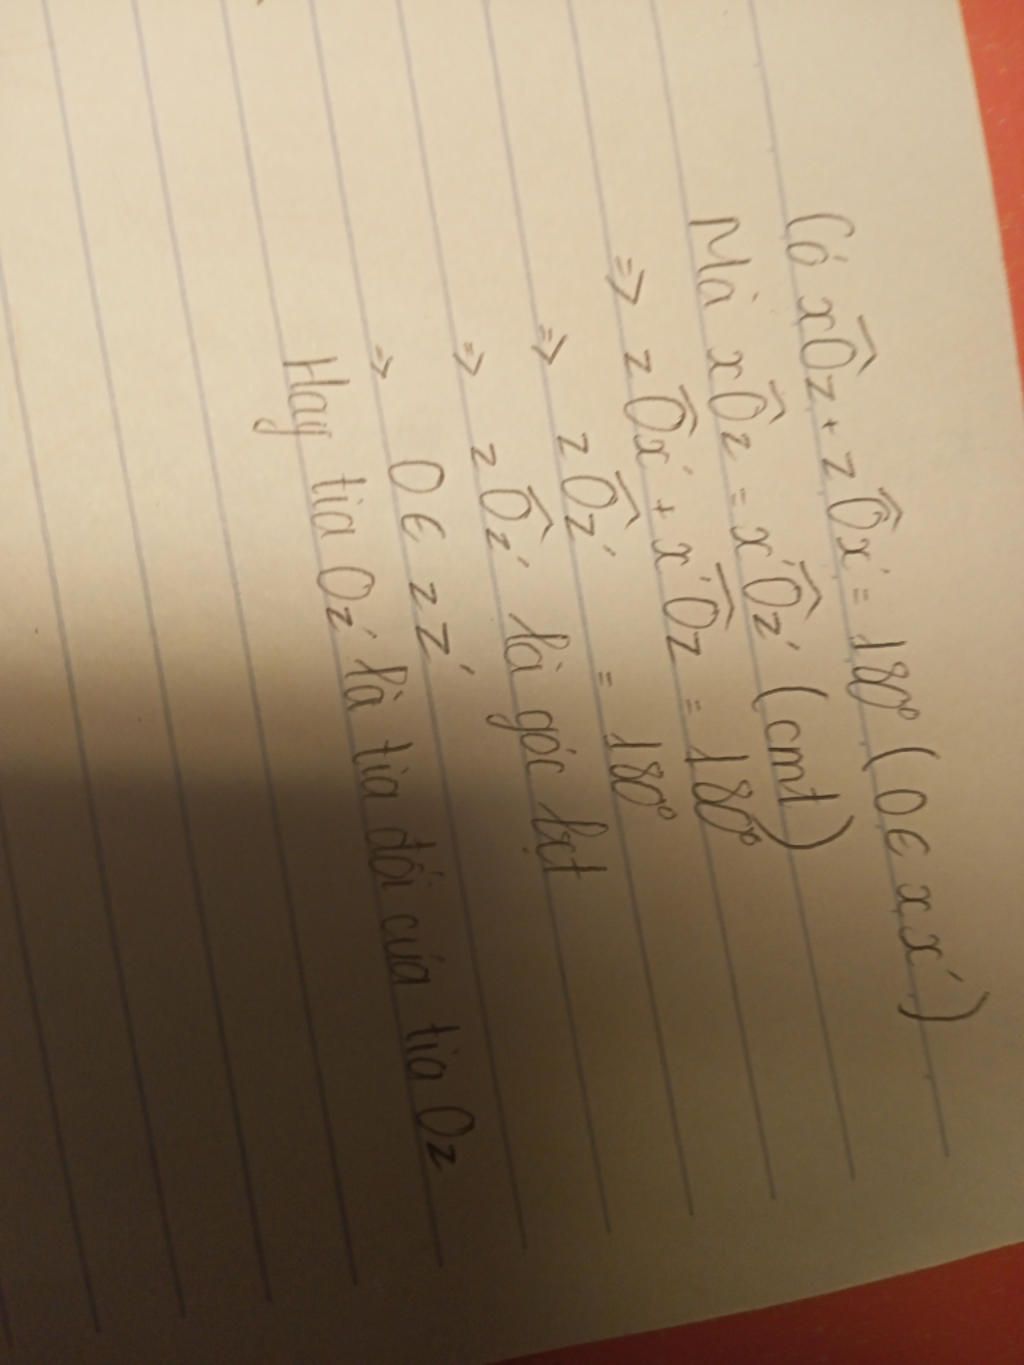 Có xÔz + zÔx' = 180° (O ∈ xx')
Mà xÔz = x'Ôz' (cmt)
=> zÔx' + x'Ôz = 180°
=> zÔz' = 180°
=> zÔz' là góc bẹt
=> O ∈ zz'
Hay tia Oz' là tia đối của tia Oz